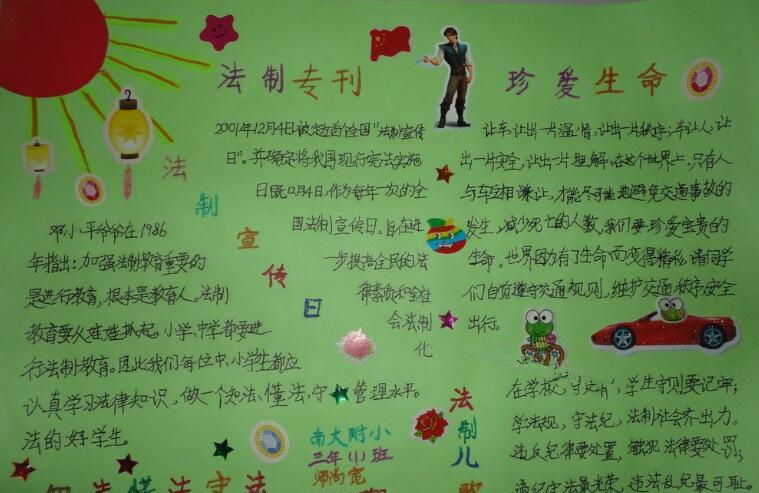 法制专刊
珍爱生命
法制宣传日
2001年12月4日被定为首个全国"法制宣传
日"。并确定将我国现行宪法实施
日既12月4日，作为每年一次的全
国法制宣传日，旨在进
一步提高全民的法
律素质和全社
会法制
化
管理水平。
邓小平爷爷在1986
年指出：加强法制教育重要的
是进行教育，根本是教育人。法制
教育要从娃娃抓起，小学、中学都要进
行法制教育。因此我们每位中、小学生都应
认真学习法律知识，做一个知法、懂法、守
法的好学生。
让车，让出一片温情，让出一片秩序；车让人，让
出一片安全，让出一片理解。在这个世界上，只有人
与车互相谦让，才能尽可能地避免交通事故的
发生，减少死亡的人数。我们要珍爱宝贵的
生命。世界因为有了生命而变得精彩，请同学
们自觉遵守交通规则，维护交通秩序，安全
出行。
南大附小
三年(1)班
法制儿歌
在学校，学生守则要记牢；
学法规，守法纪，法制社会齐出力。
违反纪律要处置，触犯法律要处罚；
遵纪守法最光荣，违法乱纪最可耻。